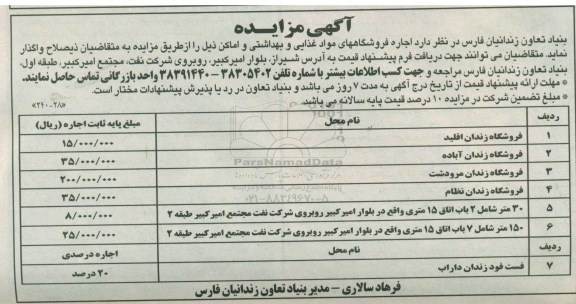 آگهی مزایده
بنیاد تعاون زندانیان فارس در نظر دارد اجاره فروشگاههای مواد غذایی و بهداشتی و اماکن ذیل را ازطریق مزایده به متقاضیان ذیصلاح واگذار
نماید. متقاضیان می توانند جهت دریافت فرم پیشنهاد قیمت به آدرس شیراز، بلوار امیرکبیر، روبروی شرکت نفت، مجتمع امیرکبیر، طبقه اول،
بنیاد تعاون زندانیان فارس مراجعه و جهت کسب اطلاعات بیشتر با شماره تلفن ۳۸۳۰۵۴۰۲ – ۳۸۳۹۱۴۴۰ واحد بازرگانی تماس حاصل نمایند.
* مهلت ارائه پیشنهاد قیمت از تاریخ درج آگهی به مدت ۷ روز می باشد و بنیاد تعاون در رد یا پذیرش پیشنهادات مختار است.
* مبلغ تضمین شرکت در مزایده ۱۰ درصد قیمت پایه سالانه می باشد. «۲۴۰۰۲۸»
ردیف نام محل مبلغ پایه ثابت اجاره (ریال)
۱ فروشگاه زندان اقلید ۱۵/۰۰۰/۰۰۰
۲ فروشگاه زندان آباده ۳۵/۰۰۰/۰۰۰
۳ فروشگاه زندان مرودشت ۲۰۰/۰۰۰/۰۰۰
۴ فروشگاه زندان نظام ۳۵/۰۰۰/۰۰۰
۵ ۳۰ متر شامل ۲ باب اتاق ۱۵ متری واقع در بلوار امیر کبیر روبروی شرکت نفت مجتمع امیر کبیر طبقه ۲ ۸/۰۰۰/۰۰۰
۶ ۱۵۰ متر شامل ۷ باب اتاق ۱۵ متری واقع در بلوار امیر کبیر روبروی شرکت نفت مجتمع امیر کبیر طبقه ۲ ۲۵/۰۰۰/۰۰۰
ردیف نام محل اجاره درصدی
۷ فست فود زندان داراب ۲۰ درصد
فرهاد سالاری – مدیر بنیاد تعاون زندانیان فارس
ParsNamadData
۰۲۱-۸۸۳۴۹۶۷۰-۸